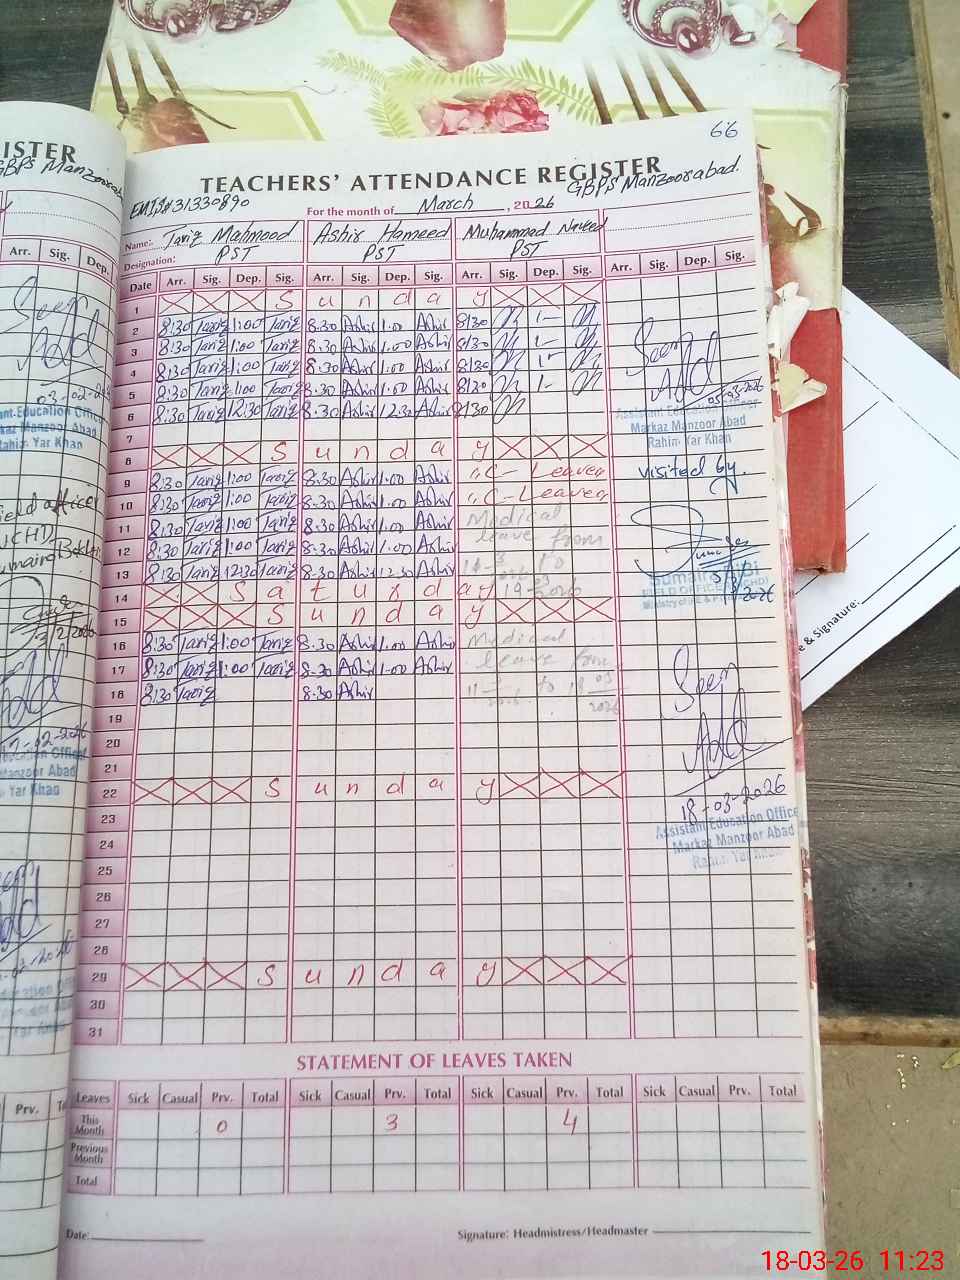 66
ISTER
GBPS Manzoorabad
TEACHERS' ATTENDANCE REGISTER
GBPS Manzoorabad.
EMIS#31330890
For the month of March, 2026
Name: Tariq Mahmood Ashir Hameed Muhammad Naveed
Designation: PST PST PST
Arr. Sig. Dep.
Date Arr. Sig. Dep. Sig. Arr. Sig. Dep. Sig. Arr. Sig. Dep. Sig. Arr. Sig. Dep. Sig.
1 S u n d a y
2 8:30 Tariq 1:00 Tariq 8.30 Ashir 1.00 Ashir 8/30 1-
3 8:30 Tariq 1:00 Tariq 8.30 Ashir 1.00 Ashir 8/30 1-
4 8:30 Tariq 1:00 Tariq 8.30 Ashir 1.00 Ashir 8/30 1-
5 8:30 Tariq 1:00 Tariq 8.30 Ashir 1.00 Ashir 8/30 1-
6 8:30 Tariq 12:30 Tariq 8.30 Ashir 12.30 Ashir 8/30
7
8 S u n d a y
9 8:30 Tariq 1:00 Tariq 8.30 Ashir 1.00 Ashir C-Leave
10 8:30 Tariq 1:00 Tariq 8.30 Ashir 1.00 Ashir C-Leave
11 8:30 Tariq 1:00 Tariq 8.30 Ashir 1.00 Ashir Medical
12 8:30 Tariq 1:00 Tariq 8.30 Ashir 1.00 Ashir leave from
13 8:30 Tariq 12:30 Tariq 8.30 Ashir 12.30 Ashir to
14 S a t u r d a y 19-03-2026
15 S u n d a y
16 8:30 Tariq 1:00 Tariq 8.30 Ashir 1.00 Ashir Medical
17 8:30 Tariq 1:00 Tariq 8.30 Ashir 1.00 Ashir leave from
18 8:30 Tariq 8.30 Ashir to 18 03 2026
19
20
21
22 S u n d a y
23
24
25
26
27
28
29 S u n d a y
30
31
Seen
05-03-2026
Assistant Education Officer
Markaz Manzoor Abad
Rahim Yar Khan
visited by.
Sumaira Bibi
Seen
18-03-2026
Assistant Education Officer
Markaz Manzoor Abad
Rahim Yar Khan
Seen
03-02-2026
Education Officer
Markaz Manzoor Abad
Rahim Yar Khan
STATEMENT OF LEAVES TAKEN
Leaves Sick Casual Prv. Total Sick Casual Prv. Total Sick Casual Prv. Total Sick Casual Prv. Total
This Month 0 3 4
Previous Month
Total
Prv.
Date:
Signature: Headmistress/Headmaster
e & Signature:
18-03-26 11:23